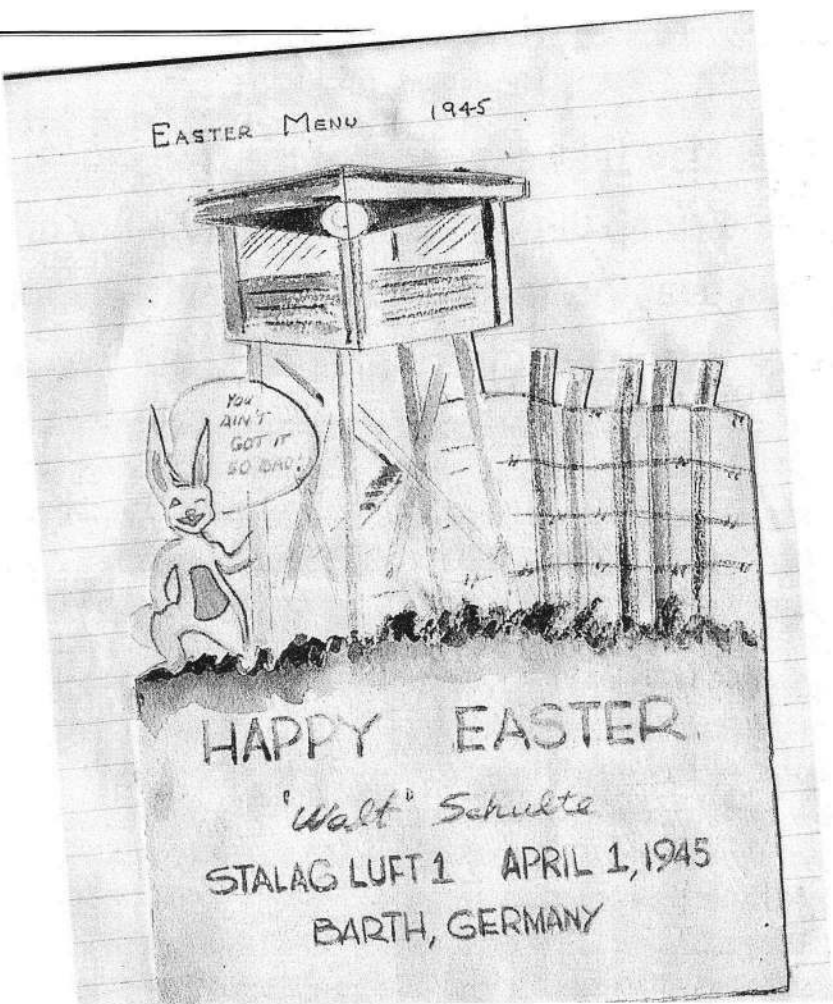 EASTER MENU 1945
YOU
AIN'T
GOT IT
SO BAD!
HAPPY EASTER
"Walt" Schulte
STALAG LUFT 1 APRIL 1, 1945
BARTH, GERMANY